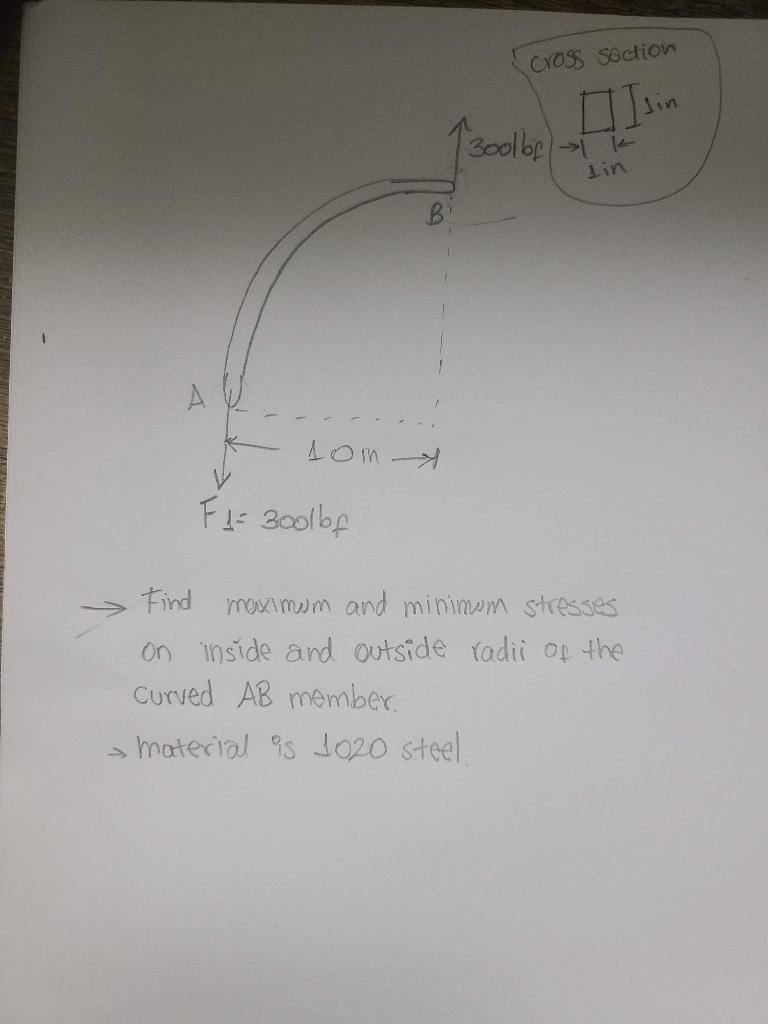 cross section
1in
300lbf
1in
B
A
10m
F1= 300lbf
→ Find maximum and minimum stresses
on inside and outside radii of the
curved AB member.
→ material is 1020 steel.